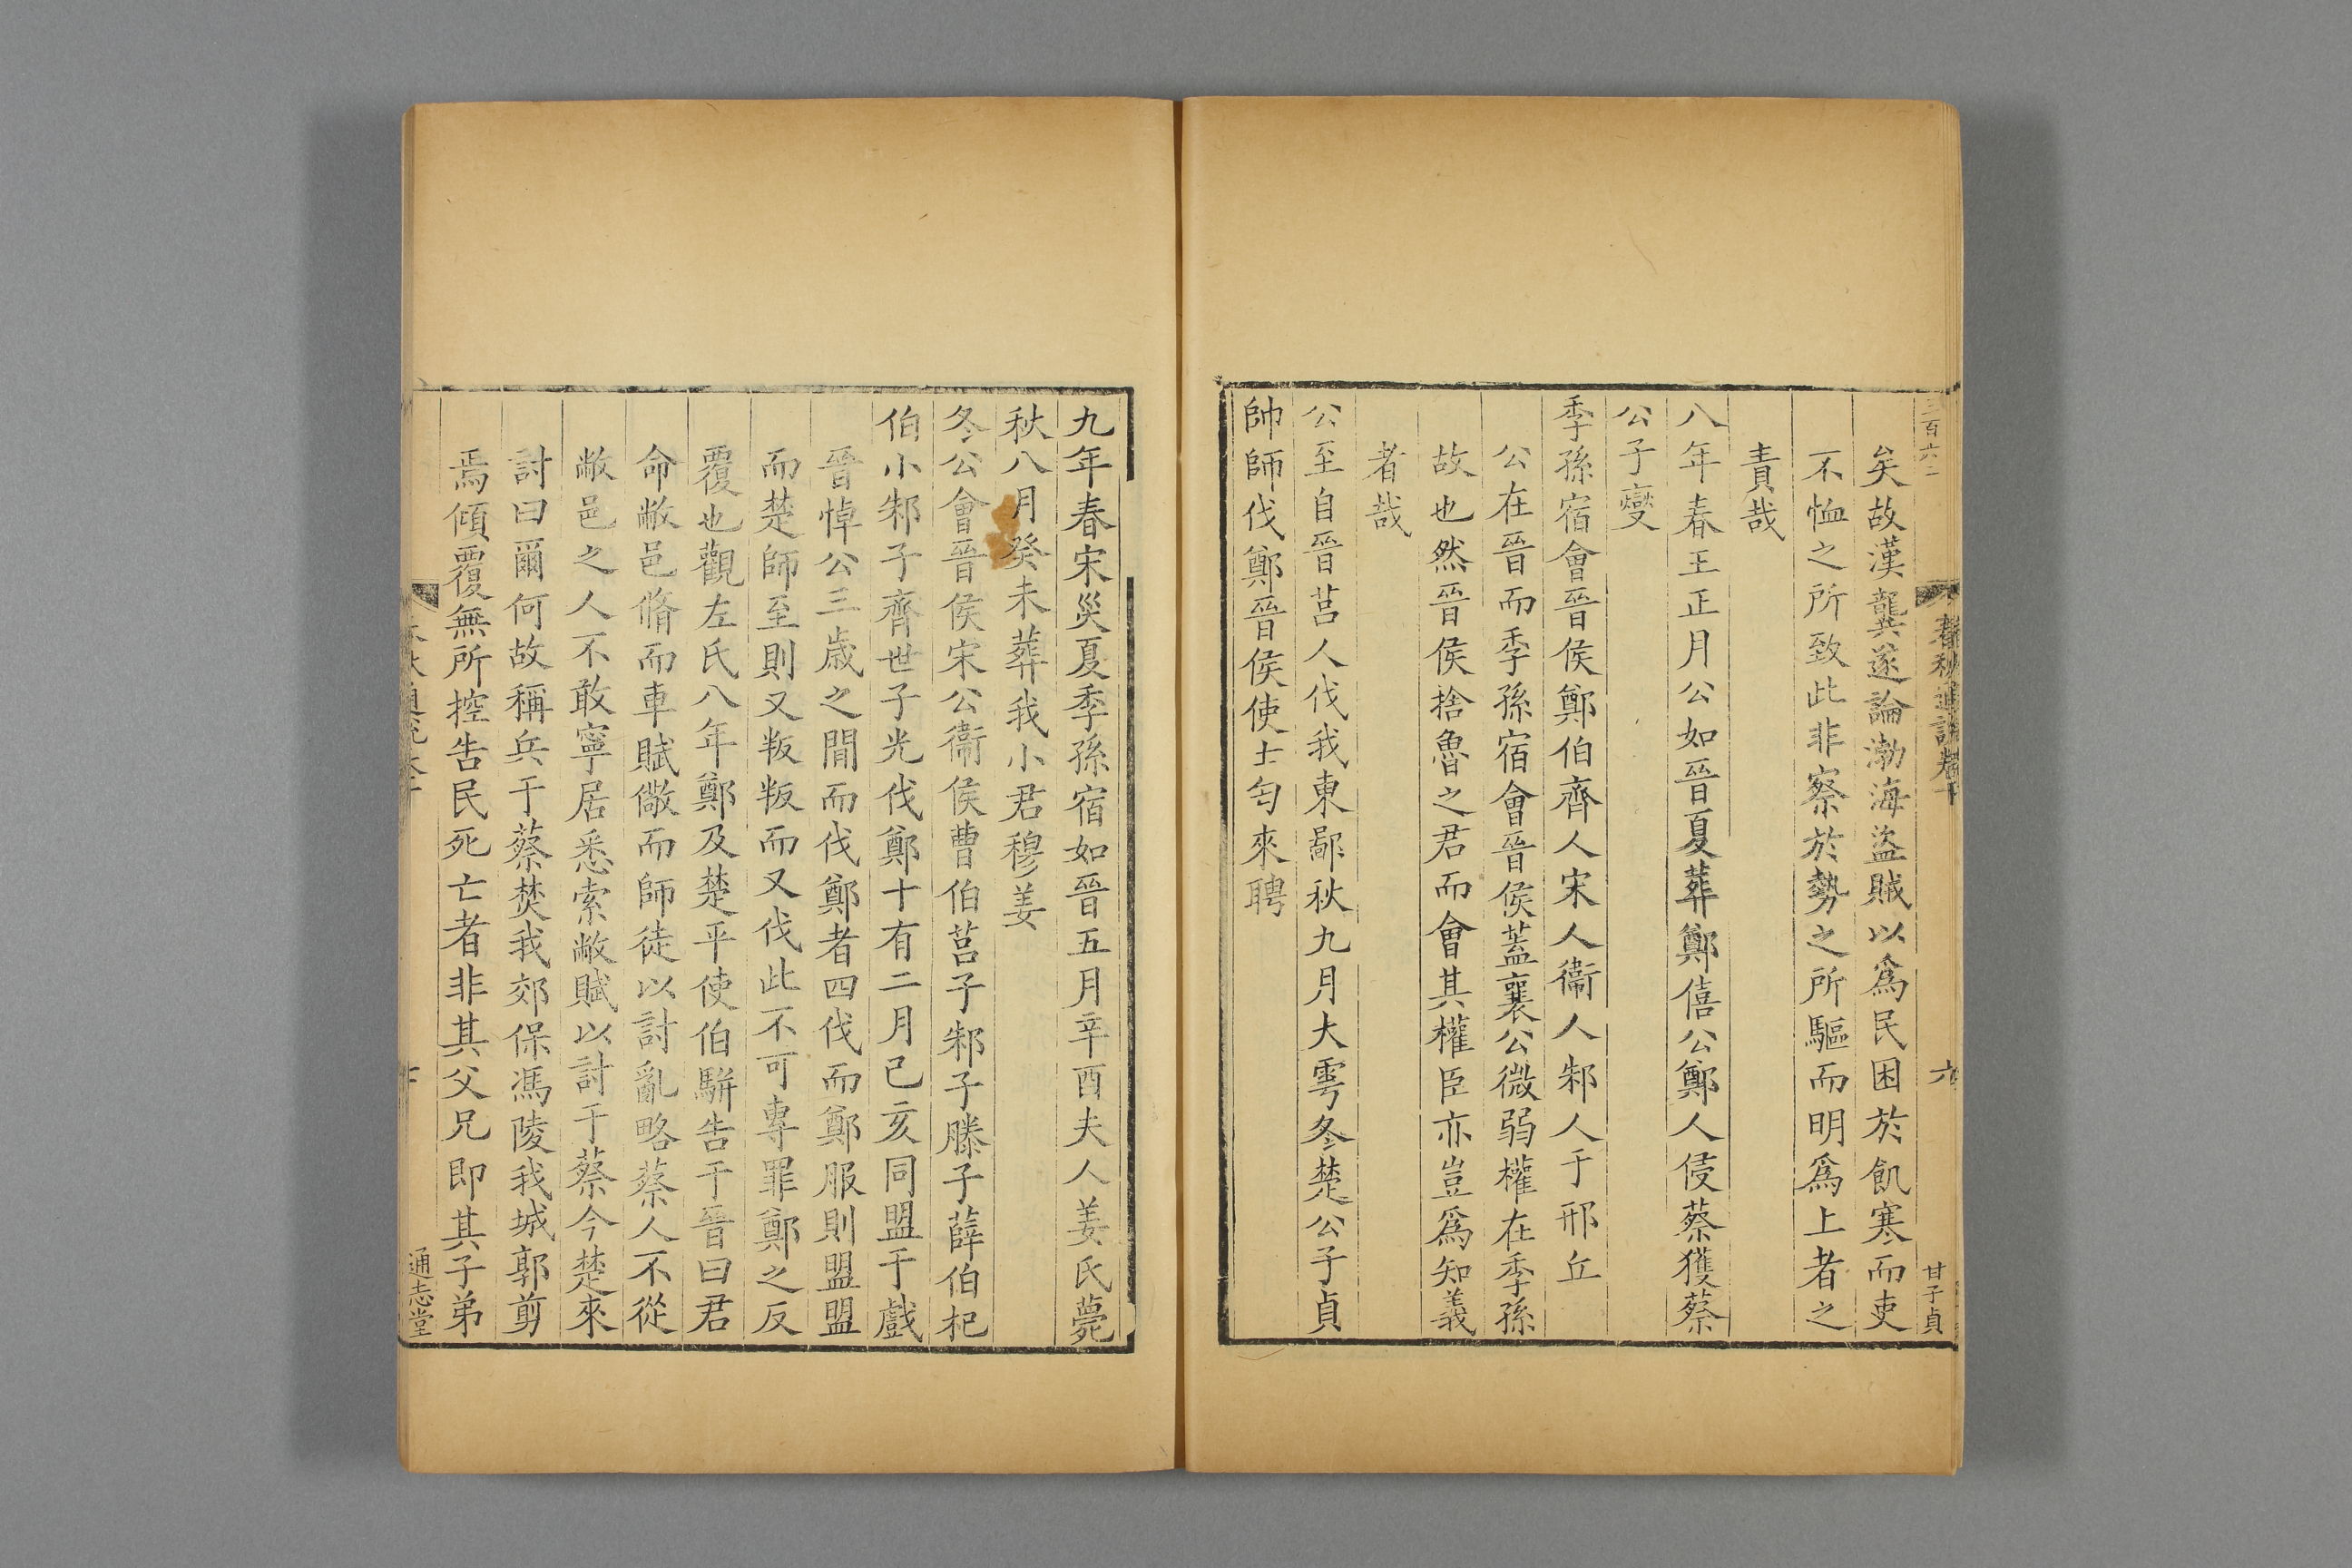 三百六二
春秋通說卷十
六
甘子貞
矣故漢龔遂論渤海盜賊以爲民困於飢寒而吏
不恤之所致此非察於勢之所驅而明爲上者之
責哉
八年春王正月公如晉夏葬鄭僖公鄭人侵蔡獲蔡
公子燮
季孫宿會晉侯鄭伯齊人宋人衞人邾人于邢丘
公在晉而季孫宿會晉侯蓋襄公微弱權在季孫
故也然晉侯捨魯之君而會其權臣亦豈爲知義
者哉
公至自晉莒人伐我東鄙秋九月大雩冬楚公子貞
帥師伐鄭晉侯使士匄來聘
九年春宋災夏季孫宿如晉五月辛酉夫人姜氏薨
秋八月癸未葬我小君穆姜
冬公會晉侯宋公衞侯曹伯莒子邾子滕子薛伯杞
伯小邾子齊世子光伐鄭十有二月己亥同盟于戲
晉悼公三歲之間而伐鄭者四伐而鄭服則盟盟
而楚師至則又叛叛而又伐此不可專罪鄭之反
覆也觀左氏八年鄭及楚平使伯駢告于晉曰君
命敝邑脩而車賦儆而師徒以討亂略蔡人不從
敝邑之人不敢寧居悉索敝賦以討于蔡今楚來
討曰爾何故稱兵于蔡焚我郊保馮陵我城郭剪
焉傾覆無所控告民死亡者非其父兄即其子弟
通志堂